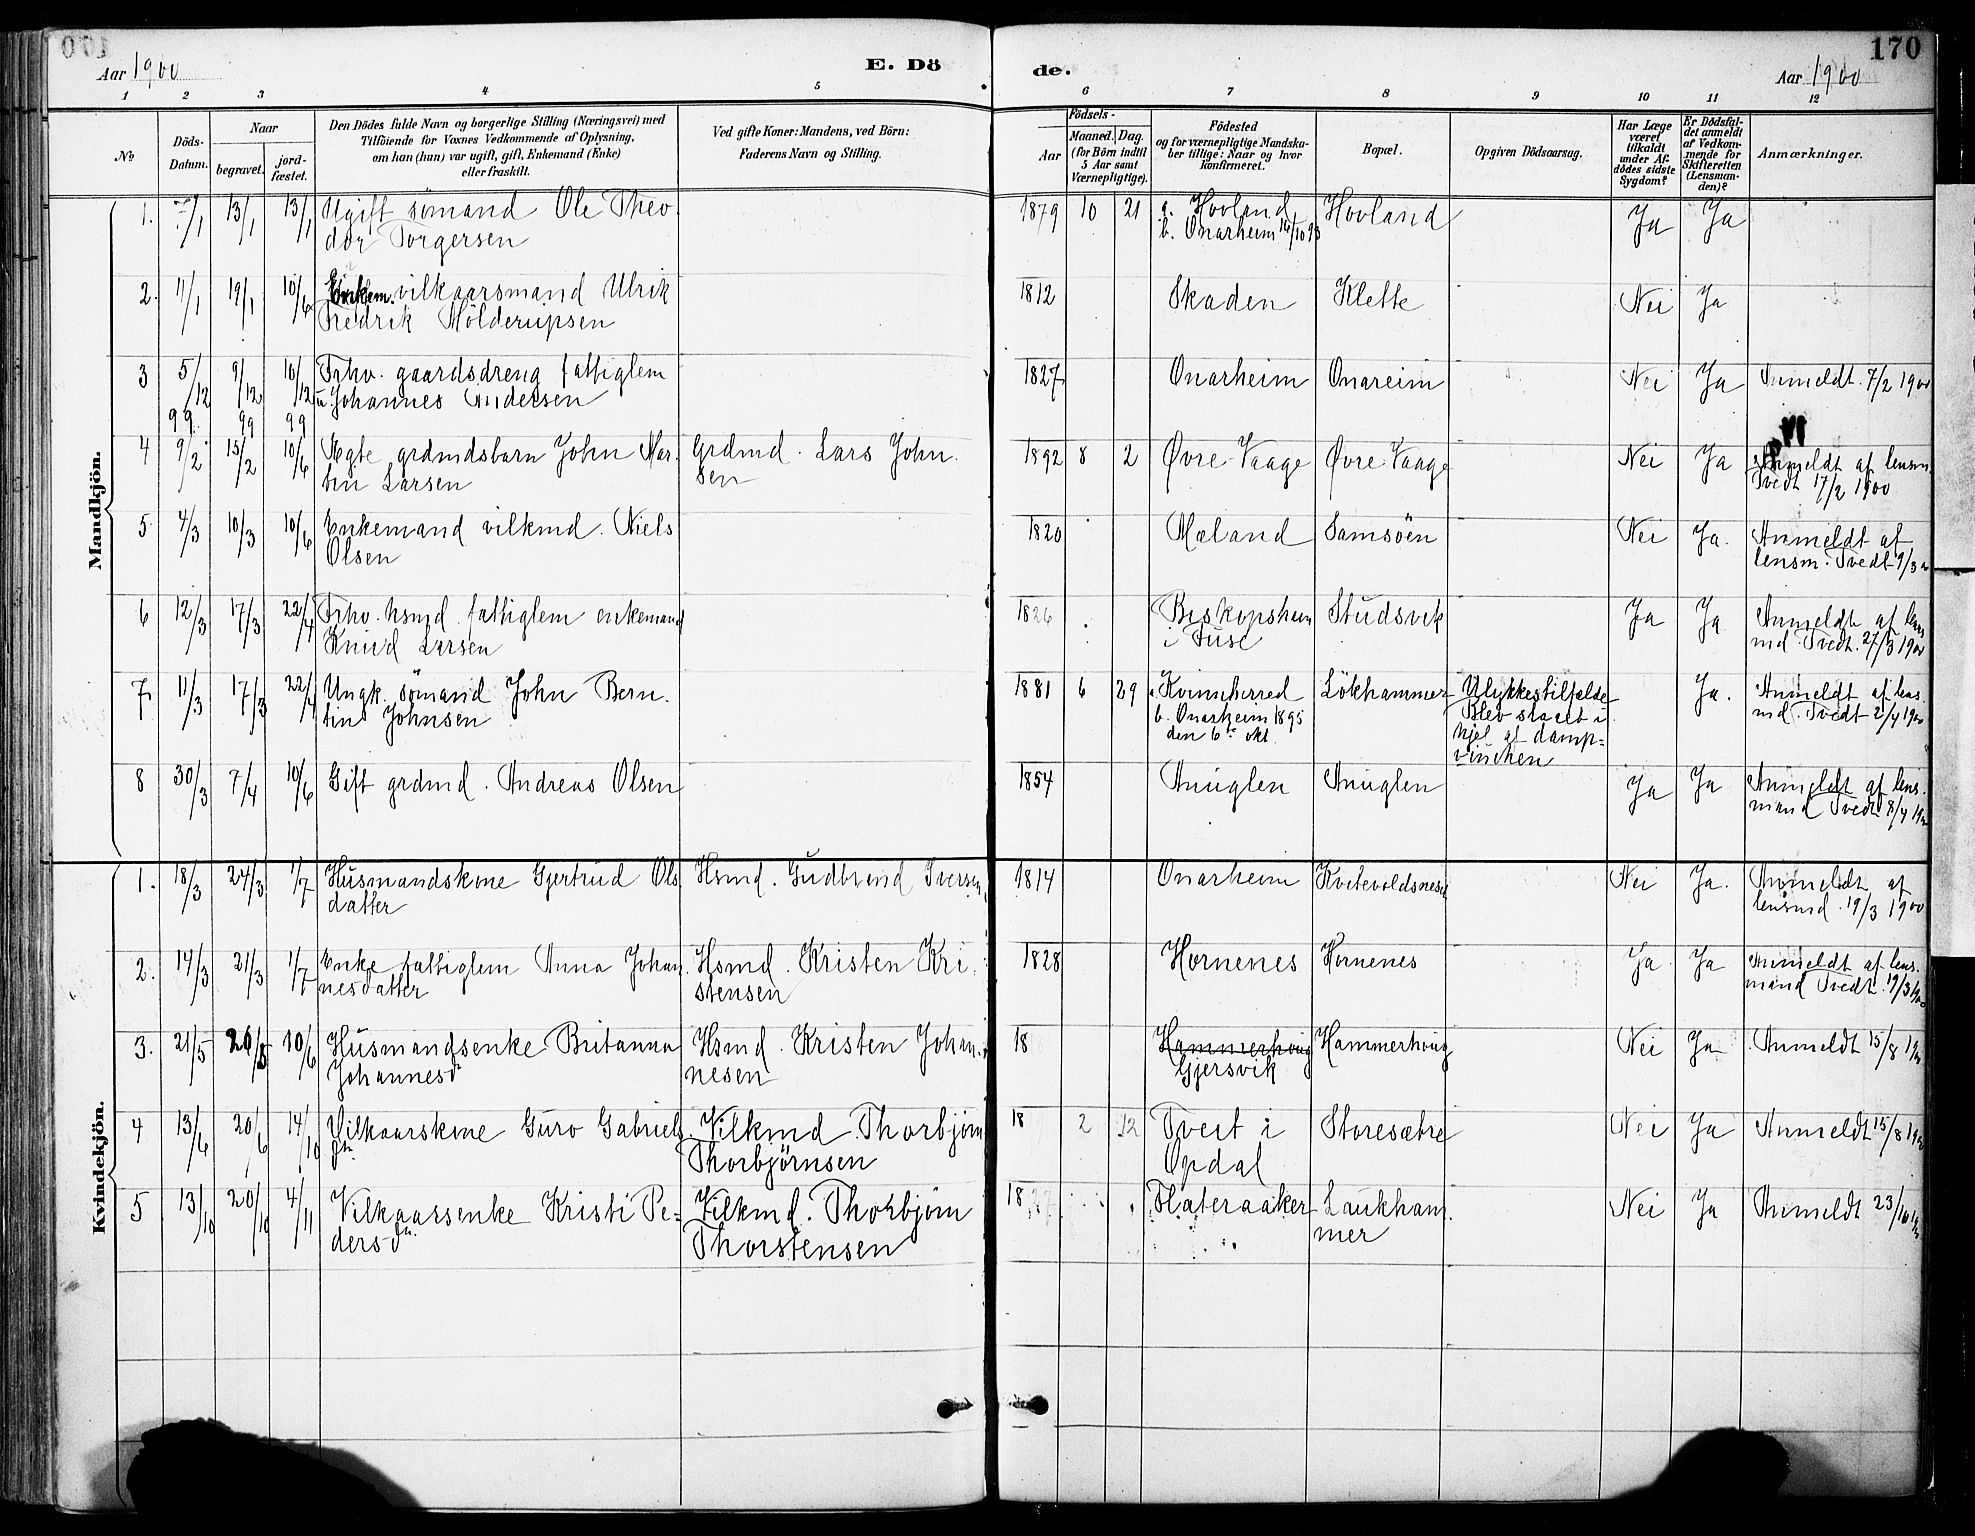 170
Aar 1900
E. Dö de.
Aar 1900
1 2 3 4 5 6 7 8 9 10 11 12
No
Döds-Datum.
Naar
begravet.
jord-fæstet.
Den Dödes fulde Navn og borgerlige Stilling (Næringsvei) med
Tilföiende for Voxnes Vedkommende af Oplysning,
om han (hun) var ugift, gift, Enkemand (Enke)
eller fraskilt.
Ved gifte Koner: Mandens, ved Börn:
Faderens Navn og Stilling.
Födsels-
Aar
Maaned. Dag.
(for Börn indtil
5 Aar samt
Værnepligtige).
Födested
og for værnepligtige Mandska-
ber tillige: Naar og hvor
konfirmeret.
Bopæl.
Opgiven Dödsaarsag.
Har Læge
været
tilkaldt
under Af-
dödes sidste
Sygdom?
Er Dödsfal-
det anmeldt
af Vedkom-
mende for
Skifteretten
(Lensman-
den)?
Anmærkninger.
Mandkjön.
1. 7/1 13/1 13/1 Ugift sömand Ole Theo-
dor Torgersen
1879 10 21 a. Hovland
b. Onarheim 14/10 93
Hovland Ja Ja
2. 11/1 19/1 10/6 Enkem. vilkaarsmand Ulrik
Fredrik Mölderupsen
1812 Skaden Klette Nei Ja
3 5/12 99 9/12 99 10/12 99 Frhv. gaardsdreng fattiglem
u. Johannes Andersen
1827 Onarheim Onareim Nei Ja Anmeldt 7/2 1900
4 9/2 15/2 10/6 Ægte grdmdsbarn John Mar-
tin Larsen
Grdmd. Lars John-
sen
1892 8 2 Øvre Vaage Øvre Vaage Nei Ja Anmeldt af lensm.
Tvedt 17/2 1900
5. 4/3 10/3 10/6 Enkemand vilkmd. Niels
Olsen
1820 Mæland Samsöen Nei Ja. Anmeldt af
lensm. Tvedt 9/3
6 12/3 17/3 22/4 Frhv. hsmd. fattiglem enkemand
Knud Larsen
1826 Biskopshavn
i Fuse
Studsvik Ja Ja Anmeldt af lens
md. Tvedt. 27/3 1900
7. 11/3 17/3 22/4 Ungk. sömand John Bern-
tin Johnsen
1881 6 29 a. Kvinneherred
b. Onarheim 1895
den 6te okt.
Lökhammer Ulykkestilfælde
Blev slaaet i
hjel af damp-
vinchen
Ja. Anmeldt af lens
md. Tvedt 2/4 1900
8 30/3 7/4 10/6 Gift grdmd. Andreas Olsen
1854 Anuglen Anuglen Ja Ja Anmeldt af lens-
mand Tvedt 8/4 1900
Kvindekjön.
1. 18/3 24/3 1/7 Husmandskone Gjertrud Ols
datter
Hsmd. Gudbrand Iversen
1814 Onarheim Kvitevoldsneset Nei Ja. Anmeldt af
lensmd. 19/3 1900
2. 14/3 21/3 1/7 Enke fattiglem Anna Johan
nesdatter
Hsmd. Kristen Kri-
stensen
1828 Hornenes Hornenes Ja Ja Anmeldt af lens-
mand Tvedt 19/3 1900
3. 21/5 26/5 10/6 Husmandsenke Britanna
Johannesd
Hsmd. Kristen Johan-
nesen
18 Hammerhoug
Gjersvik
Hammerhoug Nei Ja Anmeldt 15/8 1900
4 13/6 20/6 14/10 Vilkaarskone Guro Gabriels
dtr.
Vilkmd. Thorbjörn
Thorbjörnsen
18 2 12 Tveit i
Opdal
Storesætre Nei Ja Anmeldt 15/8 1900
5 13/10 20/10 4/11 Vilkaarsenke Kristi Pe-
dersdtr.
Vilkmd. Thorbjörn
Thorstensen
18 Flateraaker Laukham
mer
Nei Ja Anmeldt 23/10